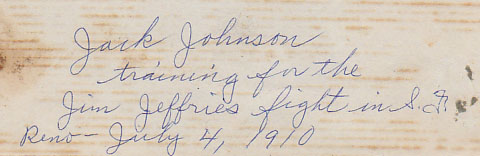 Jack Johnson
training for the
Jim Jeffries fight in S.F.
Reno - July 4, 1910